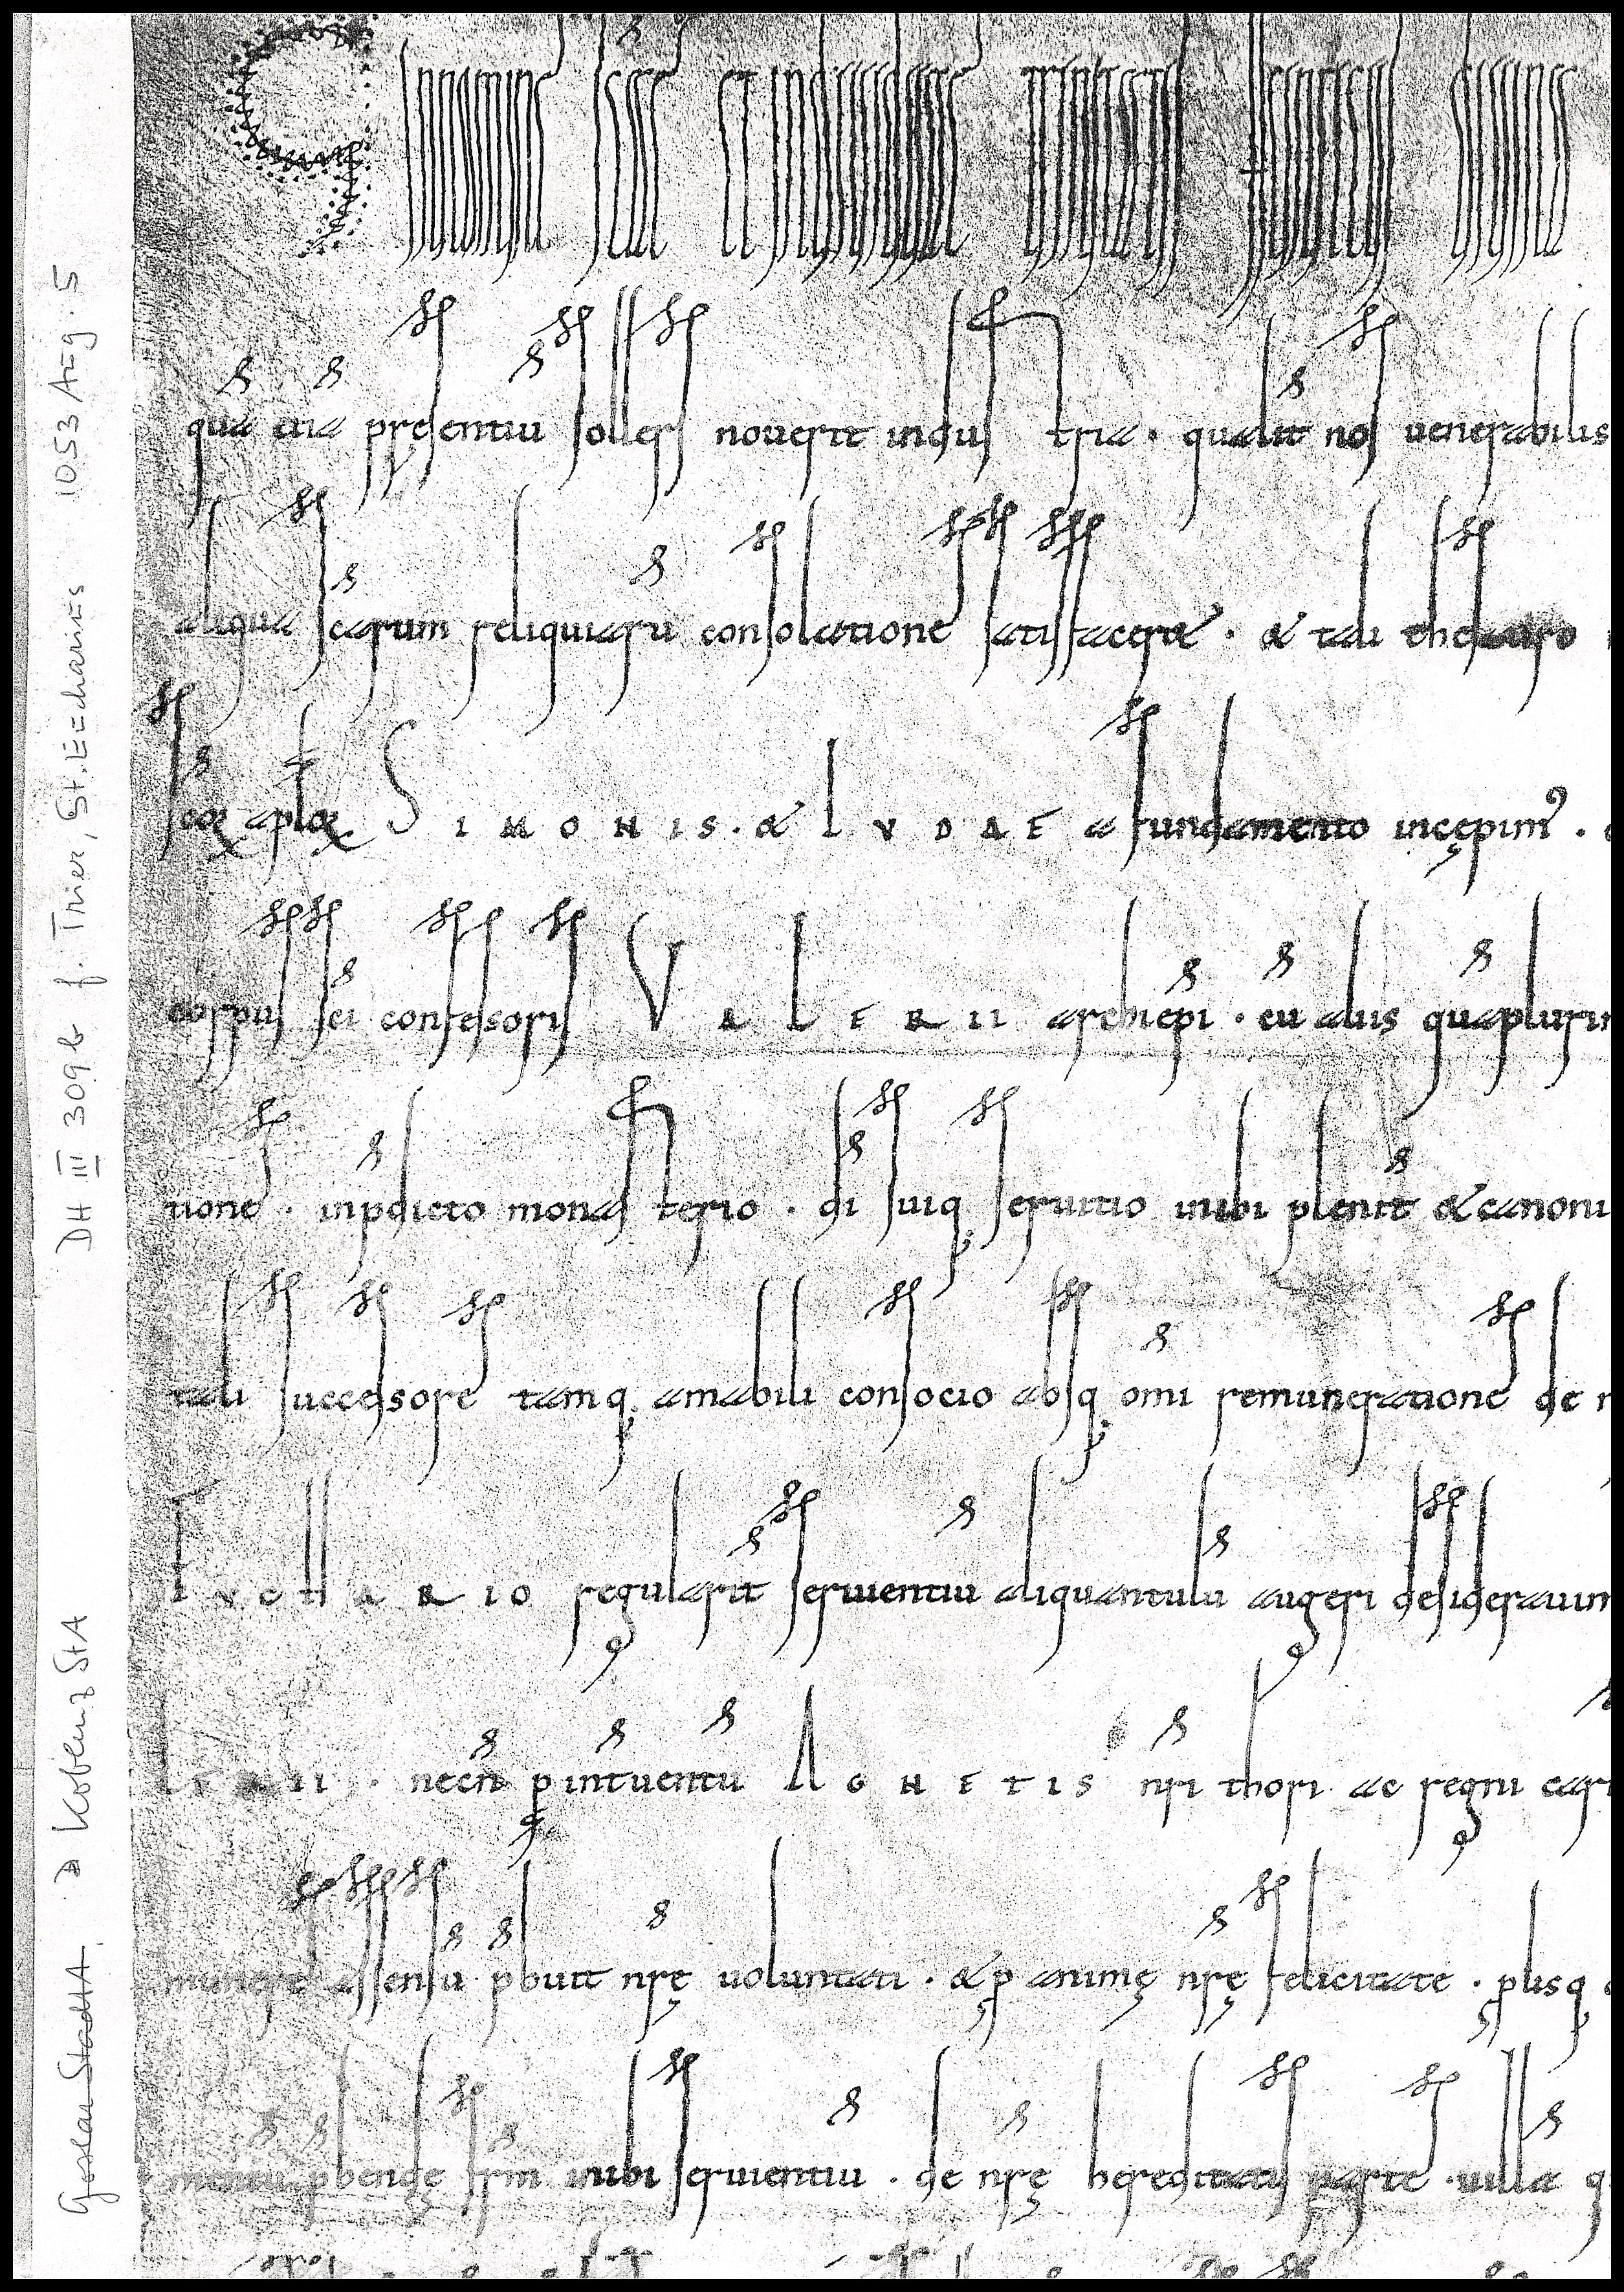 In nomine sce et individue trinitatis Heinricus divina
qua etia presentiu sollers noverit industria · qualit nos venerabilis
aliqua scarum reliquiaru consolatione satisfaceret · et tali thesauro
scor aplor SIMONIS · et IUDAE a fundamento incepim' ·
corpus sci confessoris VALERII archiepi · cu aliis quaplurim
tione · in pdicto monasterio · di suiq; servitio inibi plenit et canoni
tali successore tamq; amabili consocio absq; omi remuneratione de
EUCHARIO regularit servientiu aliquantulu augeri desideravim
LERII · necn p intuentu AGNETIS nri thori ac regni cari
munere assensu pbuit nrę voluntati · et p animę nrę felicitate · plisq
mentu pbende frm inibi servientiu · de nrę hereditatis parte · villa q
DH III 309b f. Trier, St. Eucharius 1053 Aug. 5
Goslar StadtA. Koblenz StA